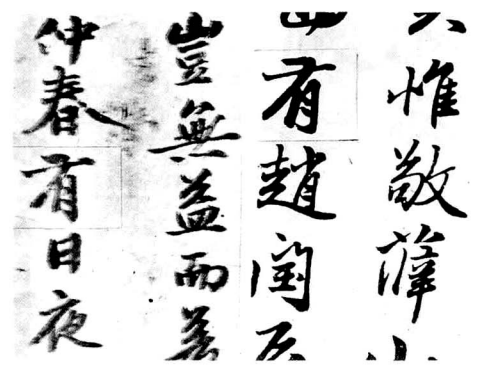 惟敬薛
有趙閏
豈無益而
仲春有日夜